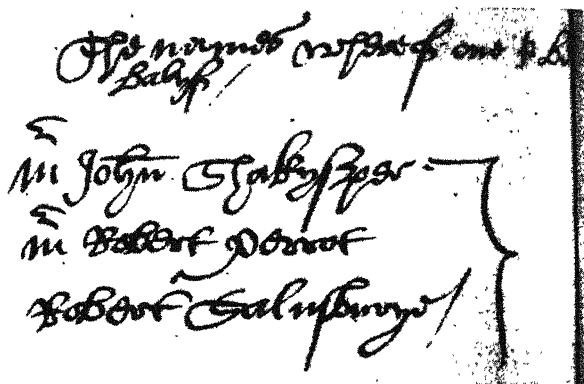 The names wherof one to be
Balyf
Mr John Shakyspere
Mr Robert Perrot
Robert Salusburye